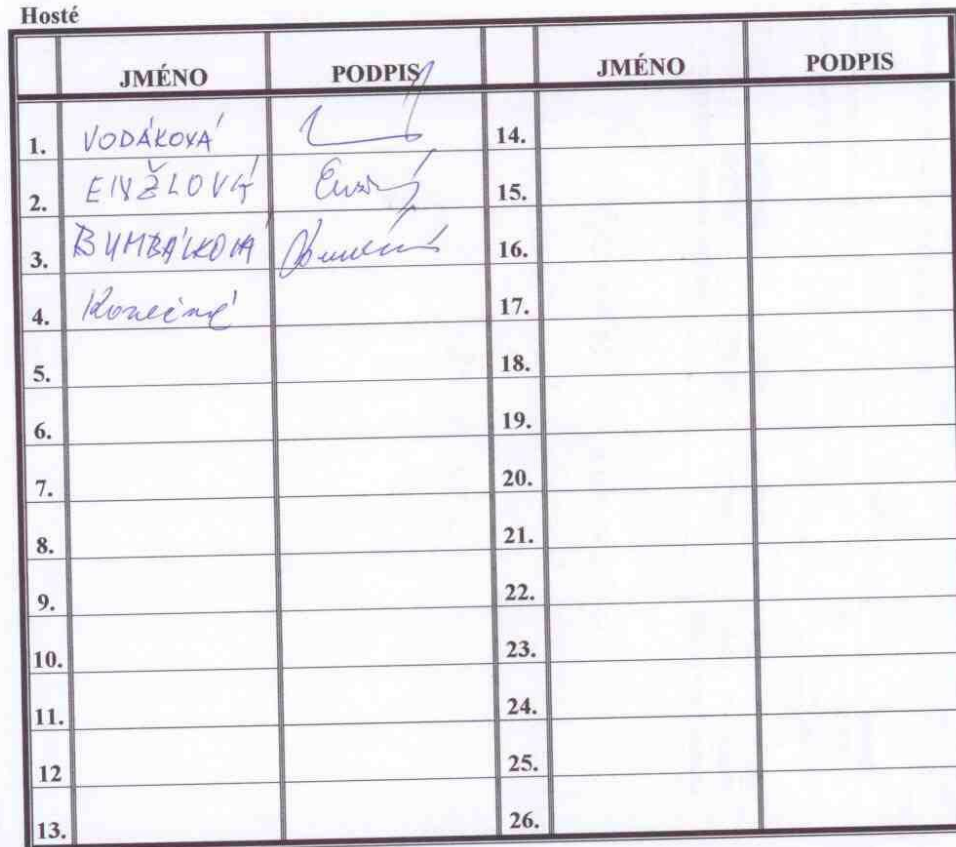 Hosté
JMÉNO PODPIS JMÉNO PODPIS
1. VODÁKOVÁ 14.
2. 15.
3. BUMBÁLKOVÁ 16.
4. Konečná 17.
5. 18.
6. 19.
7. 20.
8. 21.
9. 22.
10. 23.
11. 24.
12 25.
13. 26.